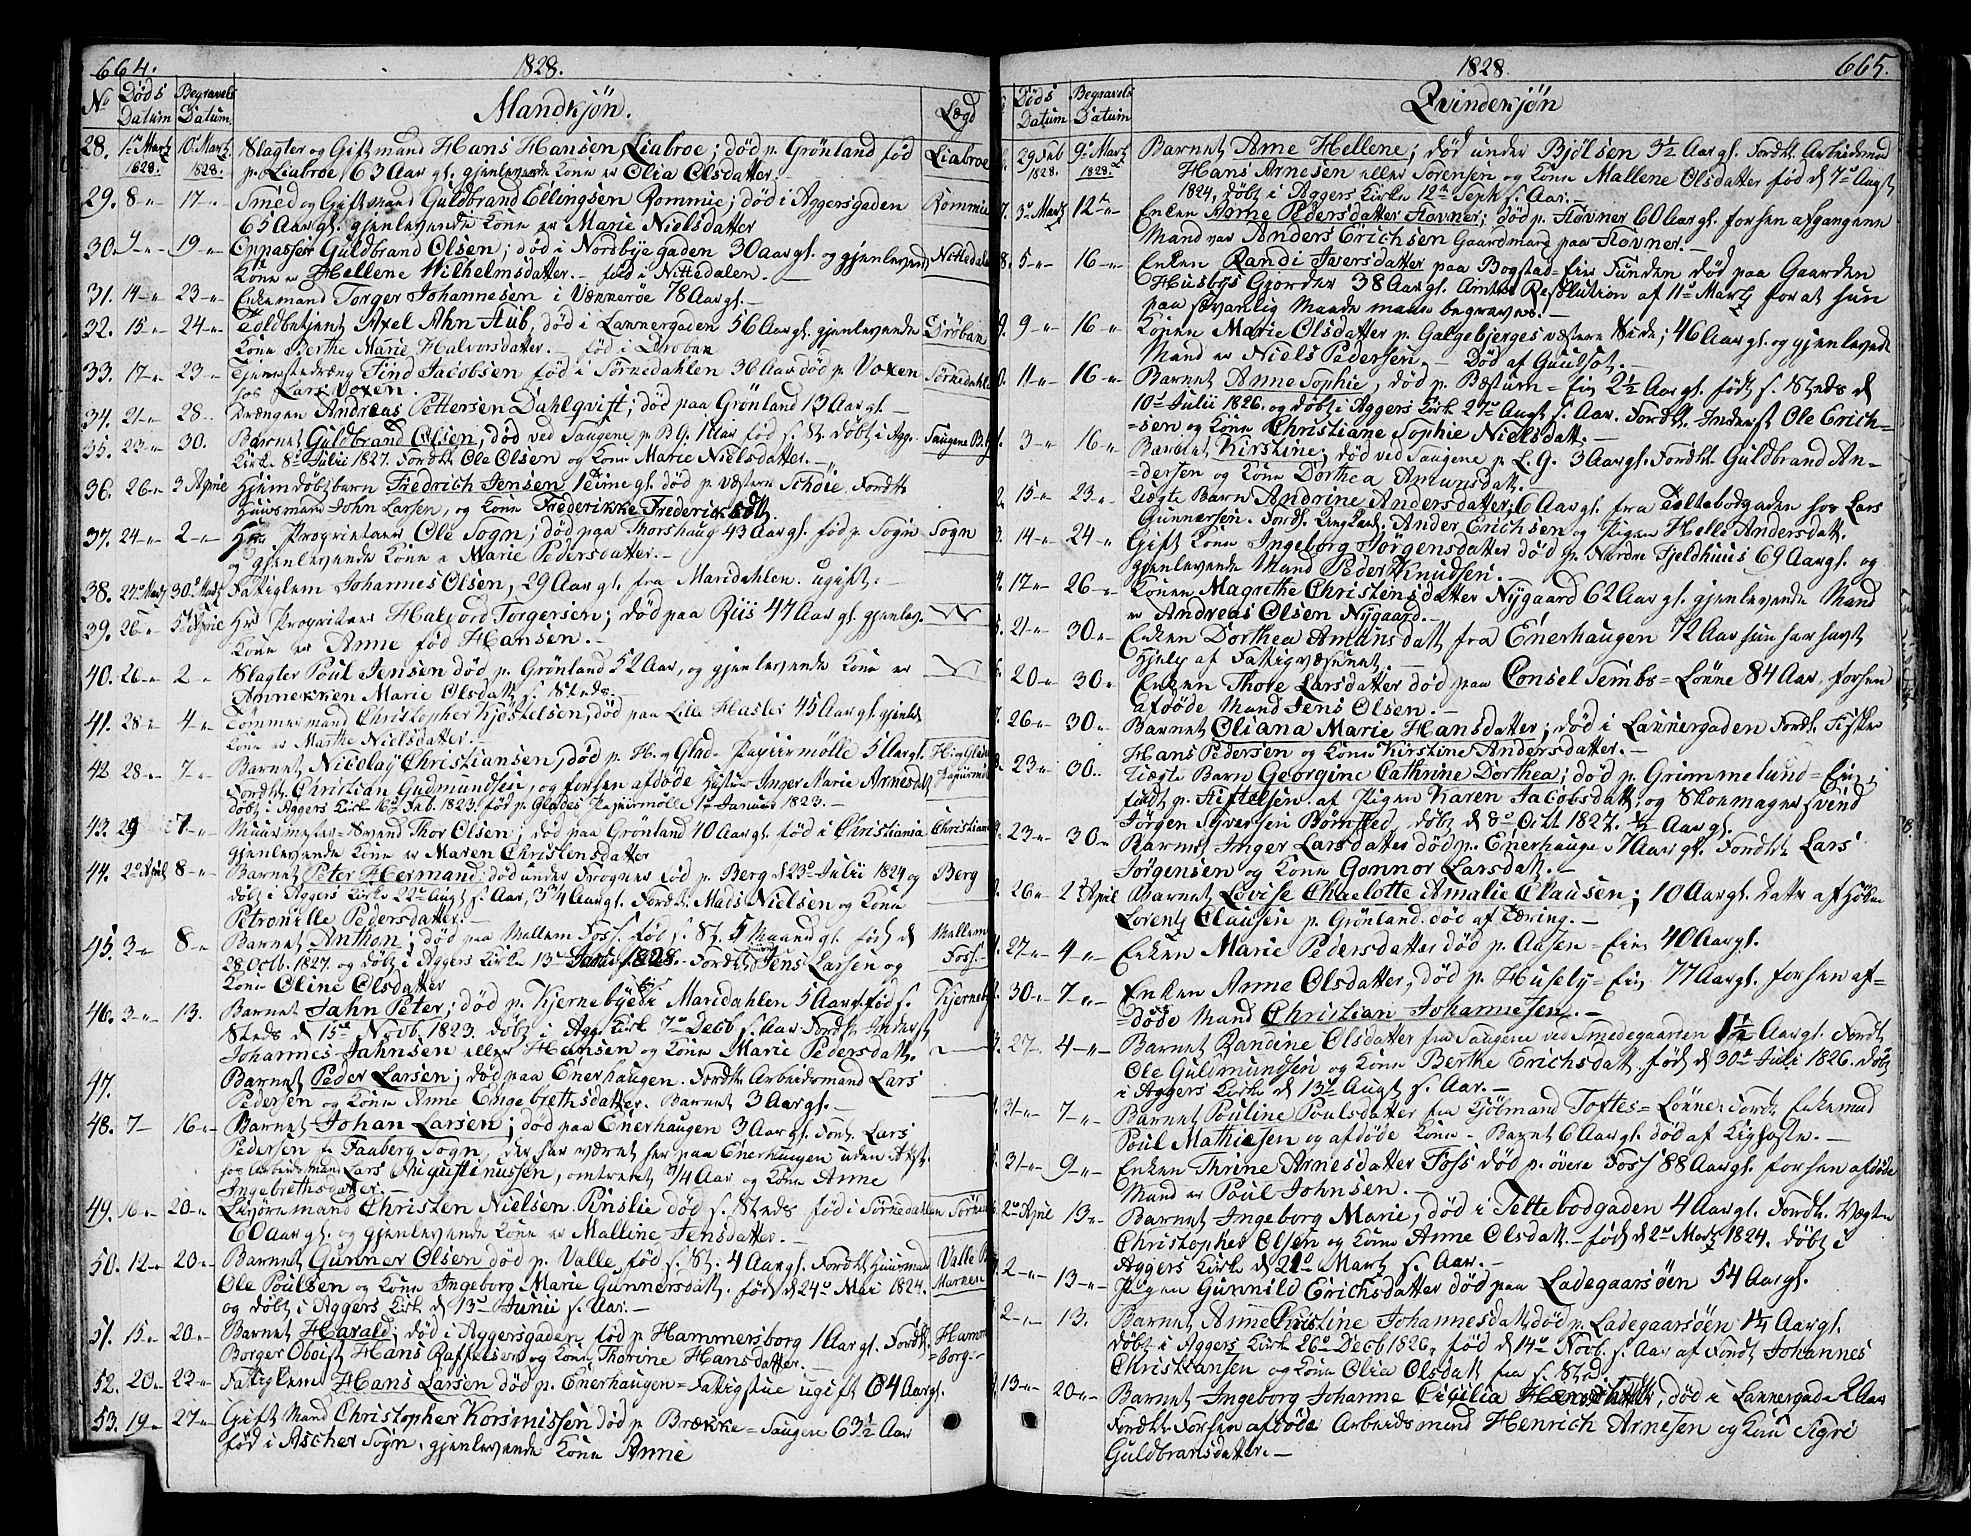 664.
1828.
No Døds Datum Begravels Datum Mandkjøn. Lægd
28. 1ste Martz 1828. 10de Martz 1828. Slagter og Gift mand Hans Hansen Liabroe; død p. Grønland fød Liabroe
p. Liabroe 63 Aar gl. gjenlevende Kone er Olia Olsdatter.
29. 8 -"- 17 -"- Smed og Gift mand Guldbrand Ellingsen Rommie; død i Aggersgaden Rommie
65 Aar gl. gjenlevende Kone er Marie Nielsdatter
30. 9 -"- 19 -"- Oppasser Guldbrand Olsen; død i Nordbyegaden 30 Aar gl. og gjenlevend Nittedale
Kone er Hellene Wilhelmsdatter. - fød i Nittedalen. -
31. 14 -"- 23 -"- Enkemand Torger Johannesen i Vænnerøe 78 Aar gl. -
32. 15 -"- 24 -"- Toldbetjent Axel Ahn Stub, død i Lannergaden 56 Aar gl. gjenlevende Drøbak
Kone Berthe Marie Halvorsdatter. - fød i Drøbak
33. 17 -"- 23 -"- Tjenestedræng Find Jacobsen fød i Sørkedahlen 36 Aar død p. Voxen Sørkedahl
hos Lars Voxen.
34. 21 -"- 28. Drængen Andreas Pettersen Dahlqvist; død paa Grønland 13 Aar gl. -
35. 23 -"- 30. Barnet Guldbrand Olsen, død ved Saugene p. B.G. 1 Aar fød s. St. døbt i Agg. Saugene B.G.
Kirke 8de Julii 1827. Fordt. Ole Olsen og Kone Marie Nielsdatter. -
36. 26 -"- 3 Aprile Hjemdøbtbarn Fredrich Jensen, 1 time gl. død p. Væstern Schøie. Fordt.
Huusmand John Larsen, og Kone Frederikke Frederiksdtt.
37. 24 -"- 2 -"- Hr. Proprietair Ole Sogn; død paa Thorshaug 43 Aar gl. fød p. Sogn Sogn
og gjenlevende Kone er Marie Pedersdatter. -
38. 24de Martz 30de Martz Fattiglem Johannes Olsen, 29 Aar gl. fra Maridahlen. ugift. -
39. 26 -"- 5te Aprile Hr. Proprietair Halvord Torgersen; død paa Riis 47 Aar gl. gjenlev.
Kone er Anne fød Hansen. -
40. 26 -"- 2 -"- Slagter Poul Jensen død p. Grønland 52 Aar, og gjenlevende Kone er
Annekken Marie Olsdatt. s. Steds.
41. 28 -"- 4 -"- Tømmermand Christopher Kjøstelsen; død paa Lille Hasle 45 Aar gl. gjenlev.
Kone er Marthe Nielsdatter. -
42. 28 -"- 7 -"- Barnet Nicolay Christiansen, død p. H. og Glad. Papiirmølle 5 Aar gl. H. og Glades
Fordt. Christian Gudmundsen, og forhen afdøde Hustru Inger Marie Arnesdtt. Papiirmø
døbt i Aggers Kirke 16de Feb. 1823. fød p. Glades Papiirmølle 1ste Januar 1823. -
43. 29 7 -"- Muurmester-Svend Thor Olsen; død paa Grønland 40 Aar gl. fød i Christiania Christiania
gjenlevende Kone er Maren Christensdatter
44. 2de Aprl 8 -"- Barnet Peter Herman; død under Frogner fød p. Berg d. 23de Julii 1824 og Berg
døbt i Aggers Kirke 22de Augt. s. Aar, 3 3/4 Aar gl. Fordt. Mads Nielsen og Kone
Petronille Pedersdatter. -
45. 3 -"- 8 -"- Barnet Anthon; død paa Mellem Foss. fød s. St. 5 Maaned gl. født d. Mellem
28 Octb. 1827. og døbt i Aggers Kirke 13de 1828. Fordt. Jens Larsen og Foss. -
Kone Oline Olsdatter
46. 3 -"- 13. Barnet Jahn Peter; død p. Kjernebyede Maridahlen 5 Aar fød s. Kjerneb
Steds d. 15de Novb. 1823. døbt i Agg. Kirk 7de Decb. s. Aar Fordt. Inderst
Johannes Jahnsen eller Hansen og Kone Marie Pedersdatt.
47. Barnet Peder Larsen; død paa Enerhaugen. Fordt. Arbeidsmand Lars
Pedersen og Kone Anne Engebrethsdatter. Barnet 3 Aar gl. -
48. 7 - 16 -"- Barnet Johan Larsen; død paa Enerhaugen 3 Aar gl. Fordt. Lars
Pedersen fr. Faaberg Sogn, der har været her paa Enerhaugen uden Attst.
hos Arbeidsmand Lars Augustinussen, omtrent 3/4 Aar og Kone Anne
Ingebrethsdatter. -
49. 16 -"- 20 -"- Livøremand Christen Nielsen Pinslie død s. Steds fød i Sørkedahlen Sørked
60 Aar gl. og gjenlevende Kone er Malline Jensdatter. -
50. 12 -"- 20 -"- Barnet Gunner Olsen død p. Valle fød s. St. 4 Aar gl. Fordt. Huusmand Valle P.
Ole Poulsen og Kone Ingeborg Marie Gunnersdatt. fød d. 24de Mai 1824. Marken
og døbt i Aggers Kirk d. 13de Junii s. Aar. -
51. 15 -"- 20 -"- Barnet Harald; død i Aggersgaden fød p. Hammersborg 1 Aar gl. Fordt. Hamm
Borger Oboist Hans Raffelsen og Kone Thorine Hansdatter. - =borg. -
52. 20 -"- 23 -"- Fattiglem Hans Larsen død p. Enerhaugen = Fattigstue ugift 64 Aar gl.
53. 19 -"- 27 -"- Gift Mand Christopher Korsmissen død p. Brække = Saugene 63 1/2 Aar
fød i Ascher Sogn. gjenlevende Kone Anne
1828
665.
Døds Datum Begravels Datum Qvindekjøn
29 Feb 1828. 9de Martz 1828. Barnet Anne Hellene; død under Bjølsen 3 1/2 Aar gl. Fordt. Arbeidsmd.
Hans Arnesen eller Sørensen og Kone Mallene Olsdatter fød d. 7de Augt.
1824, døbt i Aggers Kirke 12te Septb. s. Aar.
7. 3de Martz 12te -"- Enken Anne Pedersdatter Stovner; død p. Stovner 60 Aar gl. forhen afgangene
Mand var Anders Erichsen Gaardmand paa Stovner. -
8. 5 -"- 16 -"- Enken Randi Iversdatter paa Bogstad-Eie Funden død paa Gaarden
Husbys Gjerder 38 Aar gl. Amtets Resolution af 11te Martz for at hun
paa sævanlig Maade maae begraves. -
9. 9 -"- 16 -"- Konen Marie Olsdatter p. Galgebjerges væstre Side; 46 Aar gl. og gjenlevende
Mand er Niels Pedersen. - Død af Guulsot. -
0. 11 -"- 16 -"- Barnet Anne Sophie, død p. Bæstum = Eie 2 1/2 Aar gl. født s. Steds d.
10de Julii 1826. og døbt i Aggers Kirk 27de Augt. s. Aar. Fordt. Inderst Ole Erich=
=sen og Kone Christiane Sophie Nielsdatt. -
3 -"- 16 -"- Barnet Kirstine; død ved Saugene p. L.G. 3 Aar gl. Fordt. Guldbrand An=
=dersen og Kone Dorthea Amunsdatt. -
2. 15 -"- 23 -"- Uægte Barn Andrine Andersdatter, 6 Aar gl. fra Teltebodgaden hos Lars
Gunnersen. Fordt. Ung Karl. Ander Erichsen og Pigen Helle Andersdatt.
3. 14 -"- 24 -"- Gift Kone Ingeborg Jørgensdatter død p. Nordre Fjeldhuus 69 Aar gl. og
gjenlevende Mand Peder Knudsen.
4. 17 -"- 26 -"- Konen Magrethe Christensdatter Nygaard 62 Aar gl. gjenlevende Mand
er Andreas Olsen Nygaard. -
5. 21 -"- 30 -"- Enken Dorthea Amunsdatt fra Enerhaugen 72 Aar hun har havt
Hjelp af Fattigvæsenet. -
20 -"- 30 -"- Enken Thore Larsdatter død paa Consel Tembs = Lønne 84 Aar, forhen
afdøde Mand Jens Olsen. -
7. 26 -"- 30 -"- Barnet Oliana Marie Hansdatter; død i Lannergaden Fordt. Fisker
Hans Pedersen og Kone Kirstine Andersdatter. -
23 -"- 30. Uægte Barn Georgine Cathrine Dorthea; død p. Grimmelund = Eie,
født p. Stiftelsen. af Pigen Karen Jacobsdatt. og Skomager svend
Jørgen Syversen Børnsted, døbt d. 8de Octb. 1827. 1/2 Aar gl.
9. 23 -"- 30 -"- Barnet Inger Larsdatter død p. Enerhauge 7 Aar gl. Fordt. Lars
Jørgensen og Kone Gonnor Larsdatt. -
26 -"- 2de April Barnet Lovise Charlotte Amalie Clausen; 10 Aar gl. Datter af
Lorentz Clausen p. Grønland død af Tæring. -
27 -"- 4 -"- Enken Marie Pedersdatter død p. Aasen = Eie 40 Aar gl.
30 -"- 7 -"- Enken Anne Olsdatter, død p. Husely = Eie 77 Aar gl. forhen af=
=døde Mand Christian Johannesen. -
27. 4 -"- Barnet Randine Olsdatter fra Saugene ved Smedegaarden 1 1/2 Aar gl. Fordt.
Ole Guldmundsen og Kone Berthe Erichsdatt. fød d. 30te Juli 1826. døbt
i Aggers Kirke d. 13de Augt. s. Aar. -
31 -"- 7 -"- Barnet Pouline Poulsdatter fra Kjøbmand Toftes = Lønne. Fordt. Enkemand
Poul Mathiesen og afdøde Kone - Barnet 6 Aar gl. død af Kighoste. -
31 -"- 9 -"- Enken Thrine Arnesdatter Foss død p. øvere Foss 88 Aar gl. forhen afdøde
Mand er Poul Johnsen. -
2de April 13 -"- Barnet Ingeborg Marie, død i Teltebodgaden 4 Aar gl. Fordt. Vogter
Christopher Olsen og Kone Anne Olsdatt. - fød d. 2de Martz 1824. døbt i
Aggers Kirke d. 21de Mart s. Aar. -
2 -"- 13 -"- Pigen Gunnild Erichsdatter død paa Ladegaarsøen 54 Aar gl.
2 -"- 13. Barnet Anne Christine Johannesdatt. død p. Ladegaarsøen 1 1/4 Aar gl.
døbt i Aggers Kirk 26de Decb 1826. fød d. 14de Novb. s. Aar af Fordt. Johannes
Christiansen og Kone Olia Olsdatt fra s. Sted
13 -"- 20 -"- Barnet Ingeborg Johanne Cicilia, død i Lannergade 2 Aar
Fordt. Forhen afdøde Arbeidsmand Henrich Arnesen og Kone Sigri
Guldbransdatter. -